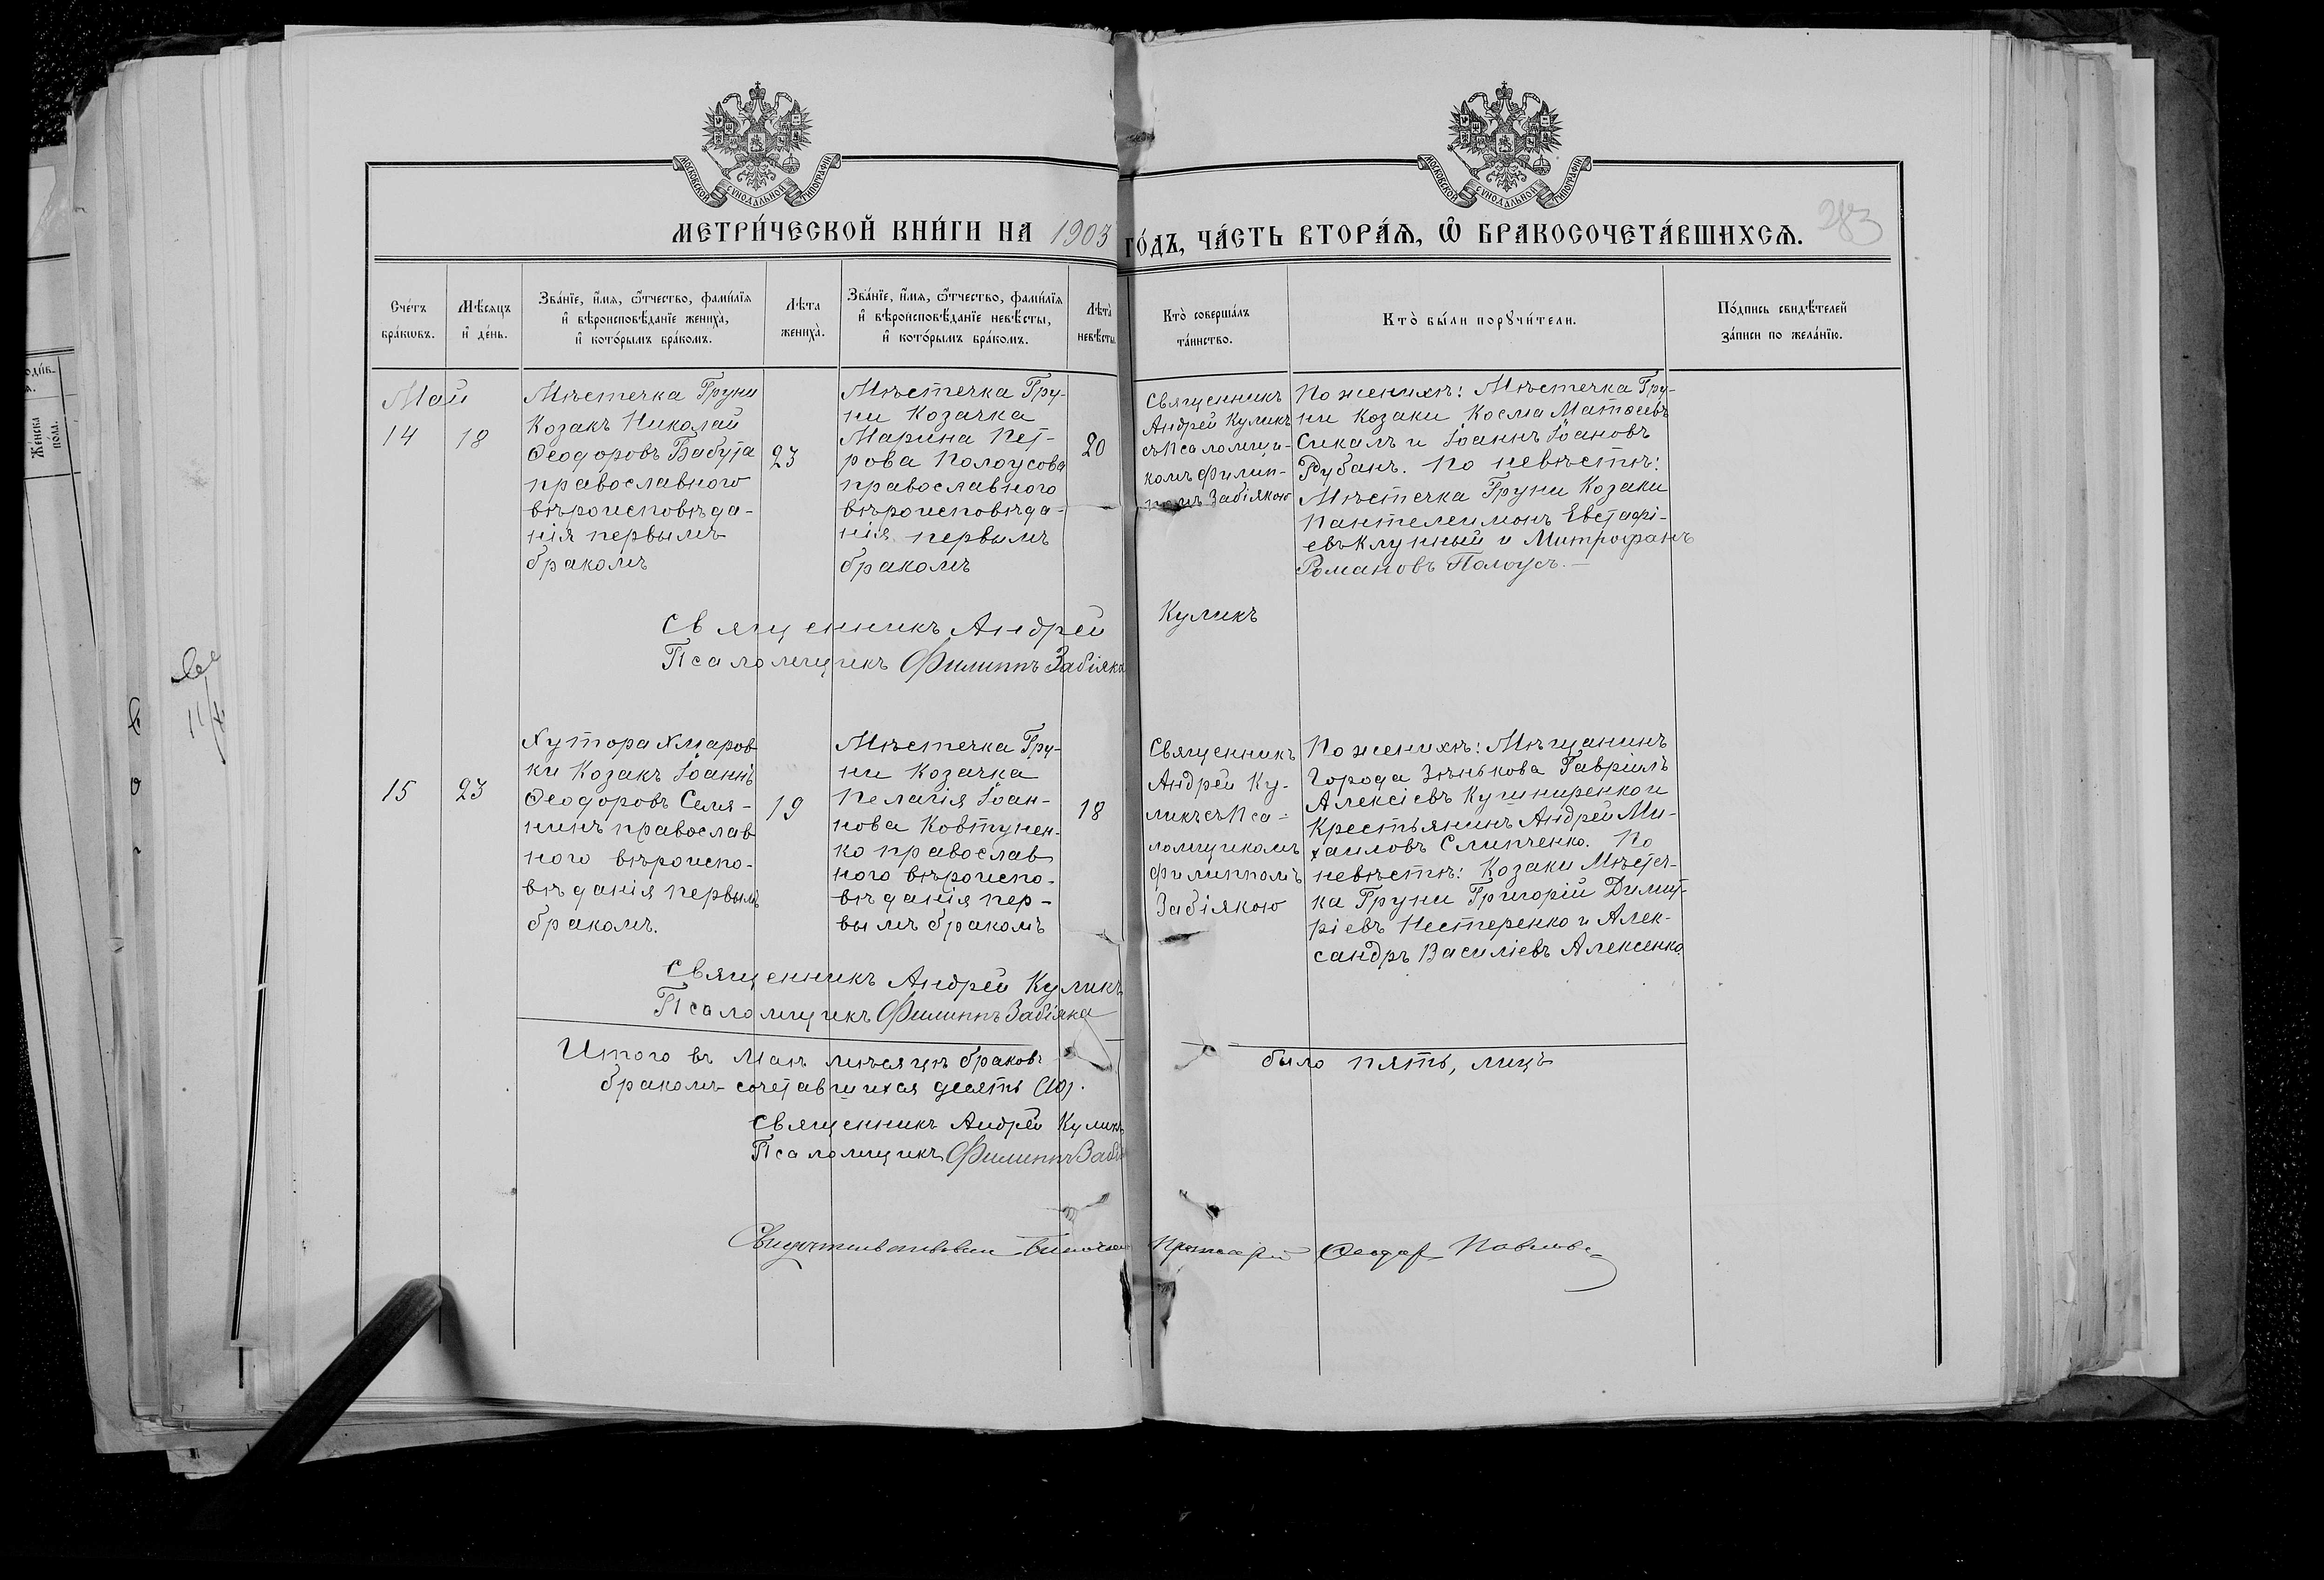 МОСКОВСКОЙ СѴНОДАЛЬНОЙ ТИПОГРАФІИ
МОСКОВСКОЙ СѴНОДАЛЬНОЙ ТИПОГРАФІИ
МЕТРИ́ЧЕСКОЙ КНИ́ГИ НА 1903
ГО́ДЪ, ЧА́СТЬ ВТОРА́Ѧ, Ѡ҆ БРАКОСОЧЕТА́ВШИХСѦ.
283
Сче́тъ
бра́кѡвъ.
Мѣ́сяцъ
и҆ де́нь.
Зва́нїе, и҆́мя, ѻ҆́тчество, фами́лїя
и҆ вѣроисповѣ́данїе жениха̀,
и҆ кото́рымъ бра́комъ.
Лѣ́та
жениха̀.
Зва́нїе, и҆́мя, ѻ҆́тчество, фами́лїя
и҆ вѣроисповѣ́данїе невѣ́сты,
и҆ кото́рымъ бра́комъ.
Лѣ́та
невѣ́сты
Кто̀ соверша́лъ
та́инство.
Кто̀ бы́ли порꙋчи́тели.
По́дпись свидѣ́телей
за́писи по жела́нїю.
Же́нска
пола.
Май
14
18
Мѣстечка Груни
Козакъ Николай
Ѳеодоровъ Бабуја
православного
вѣроисповѣда-
нія первымъ
бракомъ
23
Мѣстечка Гру-
ни Козачка
Марина Пет-
рова Полоусова
православного
вѣроисповѣда-
нія первымъ
бракомъ
20
Священникъ
Андрей Куликъ
съ Псаломщи-
комъ Филип-
помъ Забіякою
По женихѣ: Мѣстечка Гру-
ни Козаки Косма Матѳеевъ
Сикалъ и Іоаннъ Іоановъ
Рубанъ. По невѣстѣ:
Мѣстечка Груни Козаки
Пантелеимонъ Евстафі-
евъ Клунный и Митрофанъ
Романовъ Полоусъ.—
Священникъ Андрей Куликъ
Псаломщикъ Филиппъ Забіяка
15
23
Хутора Хмаров-
ки Козакъ Іоаннъ
Ѳеодоровъ Семя-
нинъ православ-
ного вѣроиспо-
вѣданія первымъ
бракомъ.
19
Мѣстечка Гру-
ни Козачка
Пелагія Іоан-
нова Ковтунен-
ко православ-
ного вѣроиспо-
вѣданія пер-
вымъ бракомъ
18
Священникъ
Андрей Ку-
ликъ съ Пса-
ломщикомъ
Филиппомъ
Забіякою
По женихѣ: Мѣщанинъ
Города Зѣнькова Гавріилъ
Алексіевъ Кушниренко и
Крестьянинъ Андрей Ми-
хаиловъ Слипченко. По
невѣстѣ: Козаки Мѣстеч-
ка Груни Григорій Димит-
ріевъ Нестеренко и Алек-
сандръ Василіевъ Алексенко.
Священникъ Андрей Куликъ
Псаломщикъ Филиппъ Забіяка
Итого въ Маѣ мѣсяцѣ браковъ было пять, лицъ
бракомъ сочетавшихся десять (10).
Священникъ Андрей Куликъ
Псаломщикъ Филиппъ Забія